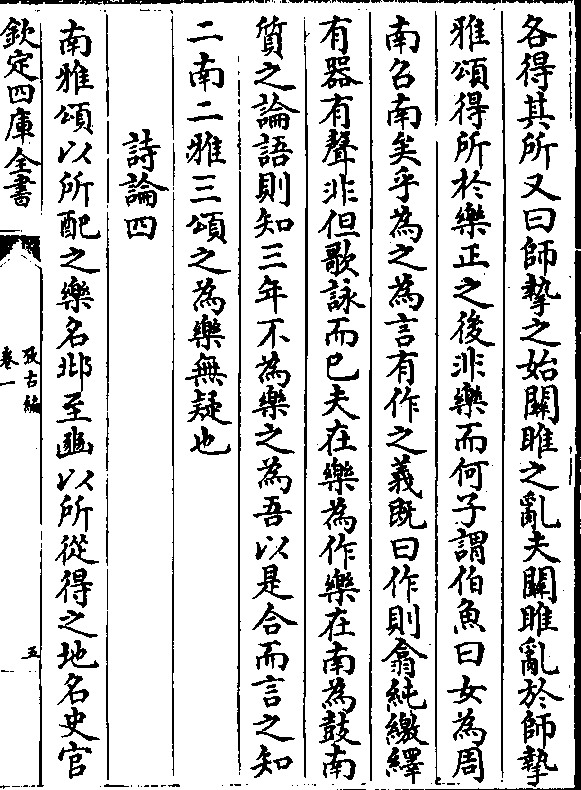 各得其所又曰師摯之始關雎之亂夫關雎亂於師摯
雅頌得所於樂正之後非樂而何子謂伯魚曰女為周
南召南矣乎為之為言有作之義既曰作則翕純繳繹
有器有聲非但歌詠而已夫在樂為作樂在南為鼓南
質之論語則知三年不為樂之為吾以是合而言之知
二南二雅三頌之為樂無疑也
詩論四
南雅頌以所配之樂名邶至豳以所從得之地名史官
欽定四庫全書
攷古編
卷一
五